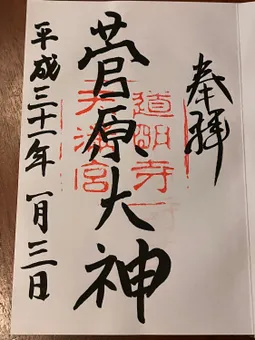 奉拝
道明寺
天満宮
菅原大神
平成三十一年一月三日